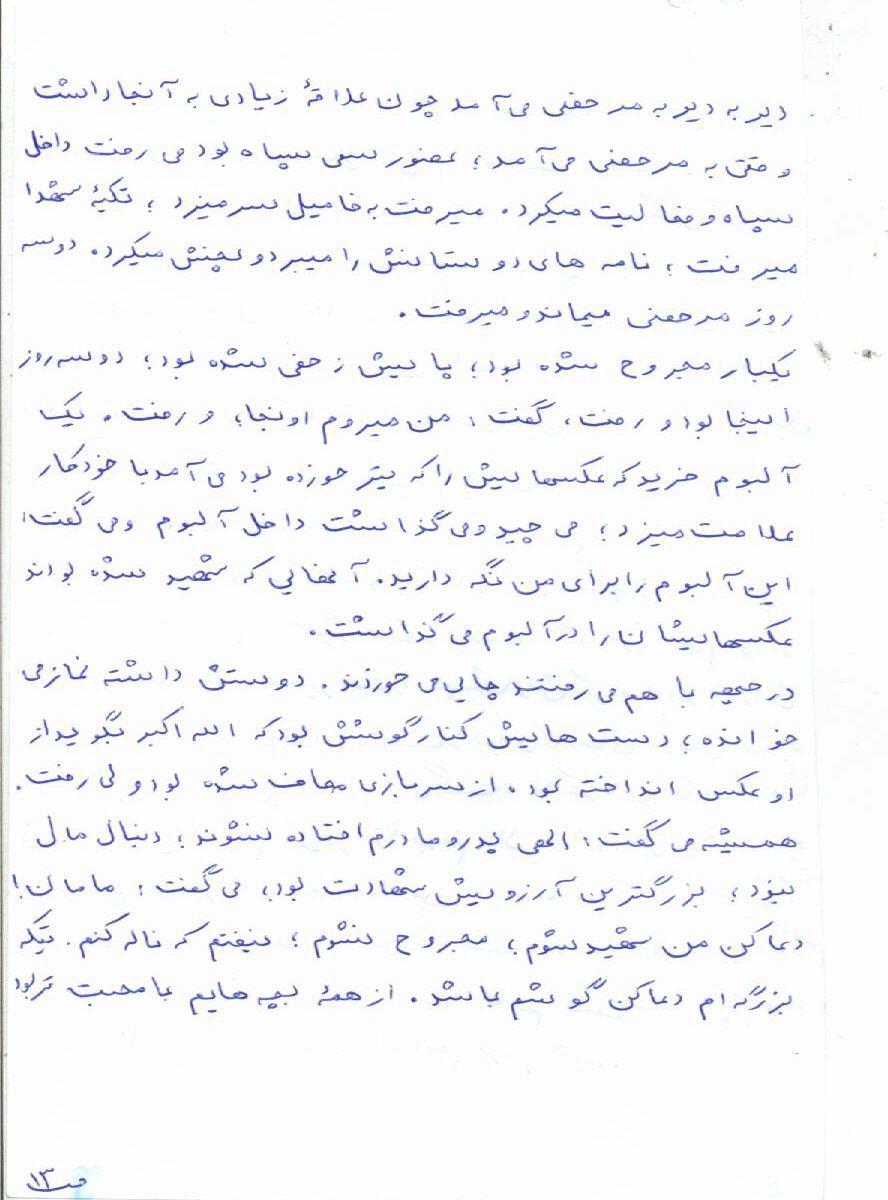 دیر به دیر به مرخصی می‌آمد چون علاقهٔ زیادی به آنجا داشت
وقتی به مرخصی می‌آمد؛ عضو بسیج سپاه بود می رفت داخل
سپاه و فعالیت میکرد. میرفت به فامیل سر میزد؛ تکیهٔ شهدا
میرفت؛ نامه های دوستانش را میبرد و پخش میکرد. دو سه
روز مرخصی میماند و میرفت.
یکبار مجروح شده بود؛ پایش زخمی شده بود؛ دو سه روز
اینجا بود و رفت، گفت: من میروم اونجا؛ و رفت. یک
آلبوم خرید که عکسهایش را که تیتر خورده بود می آمد با خودکار
علامت میزد؛ می چید و می گذاشت داخل آلبوم و می گفت:
این آلبوم را برای من نگه دارید. آنهایی که شهید شده بودند
عکسهایشان را در آلبوم می گذاشت.
در جبهه با هم می رفتند چایی می خوردند. دوستش داشته نماز می
خوانده؛ دست هایش کنار گوشش بود که الله اکبر بگوید از
او عکس انداخته بود. از سربازی معاف شده بود ولی رفت.
همیشه می گفت: الهی پدر و مادرم افتاده نشوند؛ دنبال مال
نبود؛ بزرگترین آرزویش شهادت بود، می گفت: مامان!
دعا کن من شهید شوم؛ مجروح نشوم؛ نیفتم که ناله کنم. تیکه
بزرگه ام دعا کن گوشم باشد. از همهٔ بچه هایم با محبت تر بود
ص ۱۳